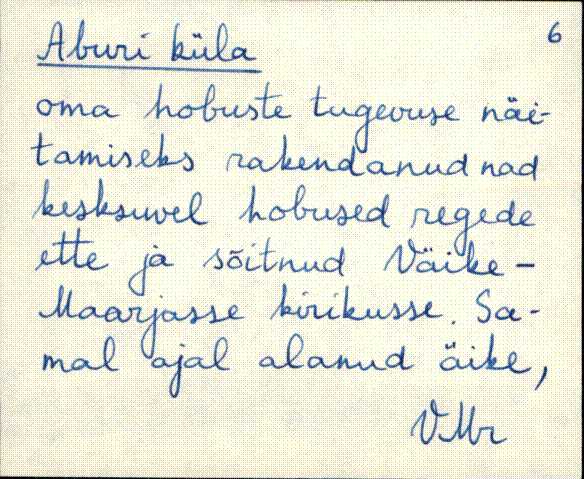 6
Aburi küla
oma hobuste tugevuse näi-
tamiseks rakendanud nad
kesksuvel hobused regede
ette ja sõitnud Väike-
Maarjasse kirikusse. Sa-
mal ajal alanud äike,
VMr